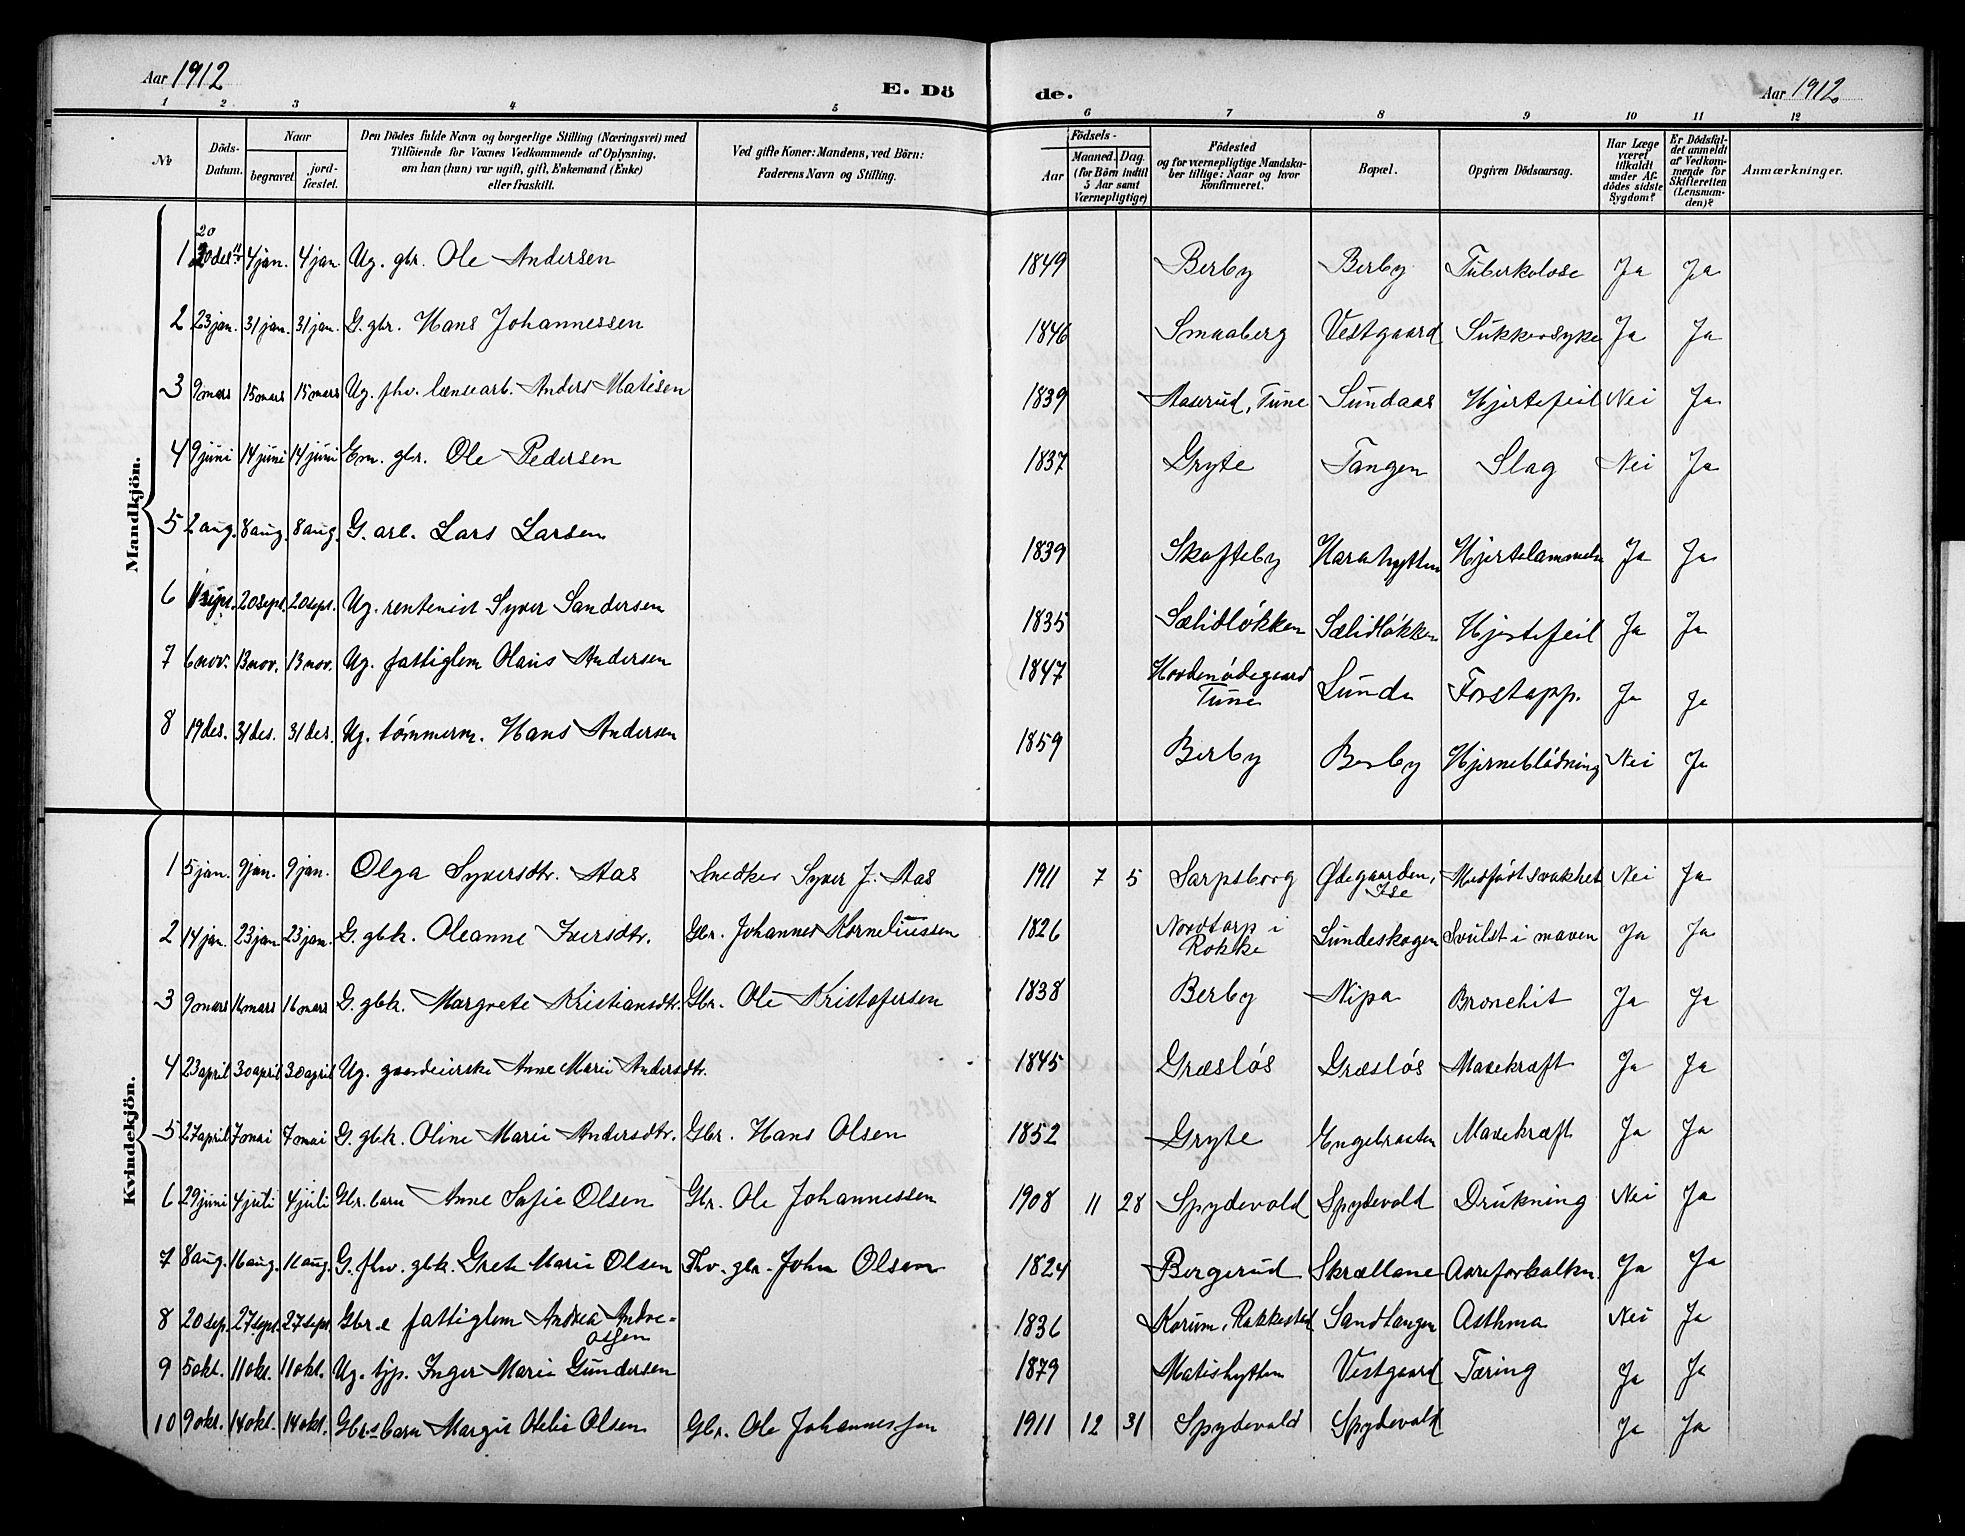 Aar 1912 E. Dö de. Aar 1912
1 2 3 4 5 6 7 8 9 10 11 12
№ Döds-Datum. Naar begravet. jord-fæstet. Den Dödes fulde Navn og borgerlige Stilling (Næringsvei) med Tilföiende for Voxnes Vedkommende af Oplysning, om han (hun) var ugift, gift, Enkemand (Enke) eller fraskilt. Ved gifte Koner: Mandens, ved Börn: Faderens Navn og Stilling. Födsels- Aar Maaned. Dag. (for Börn indtil 5 Aar samt Værnepligtige) Födested og for værnepligtige Mandskaber tillige: Naar og hvor konfirmeret. Bopæl. Opgiven Dödsaarsag. Har Læge været tilkaldt under Afdödes sidste Sygdom? Er Dödsfaldet anmeldt af Vedkommende for Skifteretten (Lensmanden)? Anmærkninger.
Mandkjön.
1 20 des 11 4 jan. 4 jan Ug. gbr. Ole Andersen 1849 Berby Berby Tuberkolose Ja Ja
2 23 jan. 31 jan. 31 jan. G. gbr. Hans Johannessen 1846 Smaaberg Vestgaard Sukkersyke Ja Ja
3 9 mars 15 mars 15 mars Ug. fhv. lænsearb. Anders Matisen 1839 Aaserud, Tune Sundaas Hjertefeil Nei Ja
4 9 juni 14 juni 14 juni Em. gbr. Ole Pedersen 1837 Gryte Tangen Slag Nei Ja
5 2 aug. 8 aug. 8 aug. G. arb. Lars Larsen 1839 Skofteby Harahytten Hjertelammelse Ja Ja
6 sept. 20 sept. 20 sept. Ug. rentenist Syver Sandersen 1835 Sælidløkken Sælidløkken Hjertefeil Ja Ja
7 6 nov. 13 nov. 13 nov. Ug. fattiglem Olaus Andersen 1847 Hovdenødegaard Tune Lunde Forstopp. Ja Ja
8 19 des. 31 des. 31 des. Ug. tømmerm. Hans Andersen 1859 Berby Berby Hjerneblødning Nei Ja
Kvindekjön.
1 5 jan. 9 jan. 9 jan. Olga Syversdtr. Aas Snedker Syver J. Aas 1911 7 5 Sarpsborg Ødegaarden, Ise Medfødt svakhet Nei Ja
2 14 jan. 23 jan 23 jan. G. gbk. Oleanne Iversdtr. Gbr. Johannes Korneliussen 1826 Nordtorp i Rokke Lundeskogen Svulst i maven Ja Ja
3 9 mars 16 mars 16 mars G. gbk. Margrete Kristiansdtr. Gbr. Ole Kristofersen 1838 Berby Nipa Bronchit Ja Ja
4 23 april 30 april 30 april Ug. gaardeierske Anne Marie Andersdtr. 1845 Græsløs Græsløs Mavekræft Ja Ja
5 27 april 7 mai 7 mai G. gbk. Oline Marie Andersdtr. Gbr. Hans Olsen 1852 Gryte Engebraaten Mavekræft Ja Ja
6 29 juni 4 juli 4 juli Gbr. barn Anne Sofie Olsen Gbr. Ole Johannessen 1908 11 28 Spydevold Spydevold Drukning Nei Ja
7 8 aug. 16 aug. 16 aug. G. fhv. gbk. Grete Marie Olsen Fhv. gbr. John Olsen 1824 Bergerud Skrællane Aareforkalkn. Ja Ja
8 20 sep. 27 sept. 27 sept Gbr.e fattiglem Andrea Andreassen 1836 Korum, Rakkestad Sandtangen Asthma Nei Ja
9 5 okt. 11 okt. 11 okt. Ug. tjp. Inger Marie Gundersen 1879 Matishytten Vestgaard Tæring Ja Ja
10 9 okt. 14 okt. 14 okt. Gbr.s barn Margit Otelie Olsen Gbr. Ole Johannessen 1911 12 31 Spydevold Spydevold Ja Ja